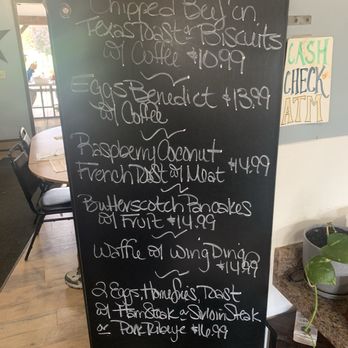 Chipped Beef on
Texas Toast or Biscuits
w/ Coffee $10.99
Eggs Benedict $13.99
w/ Coffee
Raspberry Coconut
French Toast w/ Meat $14.99
Butterscotch Pancakes
w/ Fruit $14.99
Waffle w/ Wing Ding
$14.99
2 Eggs, Homefries, Toast
w/ Ham Steak or Sirloin Steak
or Pork Ribeye $16.99
CASH
CHECK
ATM